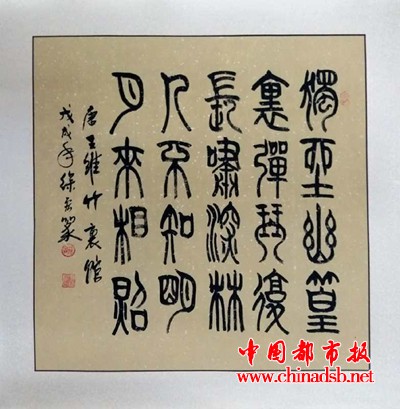 獨坐幽篁
裏彈琴復
長嘯深林
人不知明
月來相照
唐王維竹裏館
戊戌年徐篆
中国都市报
www.chinadsb.net